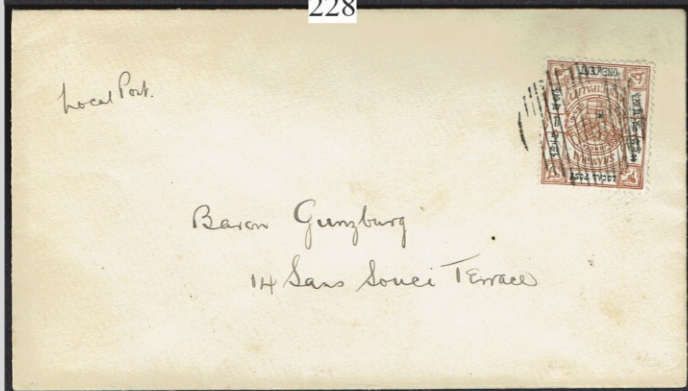 228
Local Post.
LOCAL POST
Baron Gunzburg
14 Sans Souci Terrace